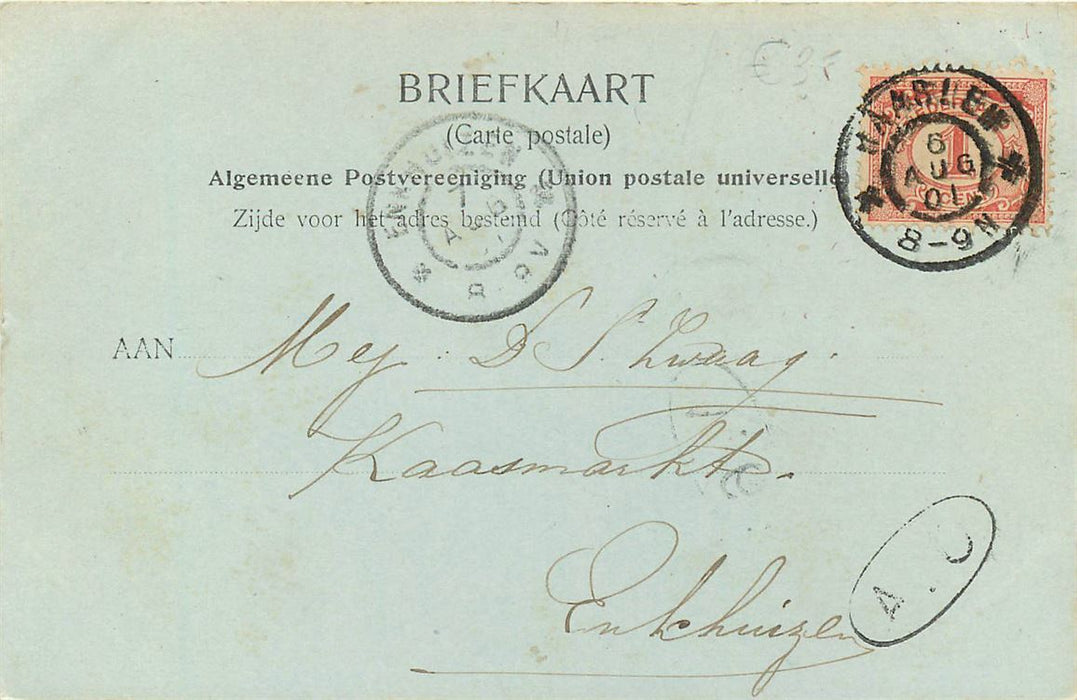 BRIEFKAART
(Carte postale)
Algemeene Postvereeniging (Union postale universelle
Zijde voor het adres bestemd (Côté réservé à l'adresse.)
HAARLEM
6
AUG
01
8-9N
1
CENT
ENKHUIZEN
7
AUG
8
8V
€ 35
AAN
Mej: D S. Zwaag.
Kaasmarkt.
Enkhuizen
A. C